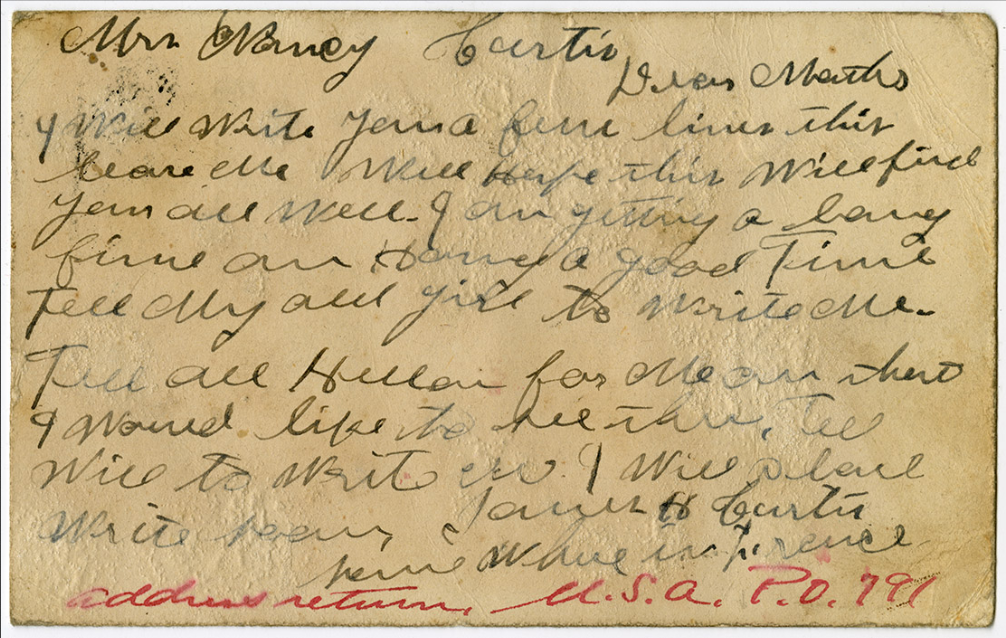 Mrs Nancy Curtis
Dear Mother
I Will Write you a fiew lines this
leave Me Well Hope this Will find
you all Well. I am getting a long
fine an Haveing a good Time
Tell My old girl to Write Me.
Tell all Hello for Me an that
I Would like to see them, Tell
Will to Write. I Will close
Write soon, James H Curtis
some Where in France
address return, U.S.A. P.O. 791